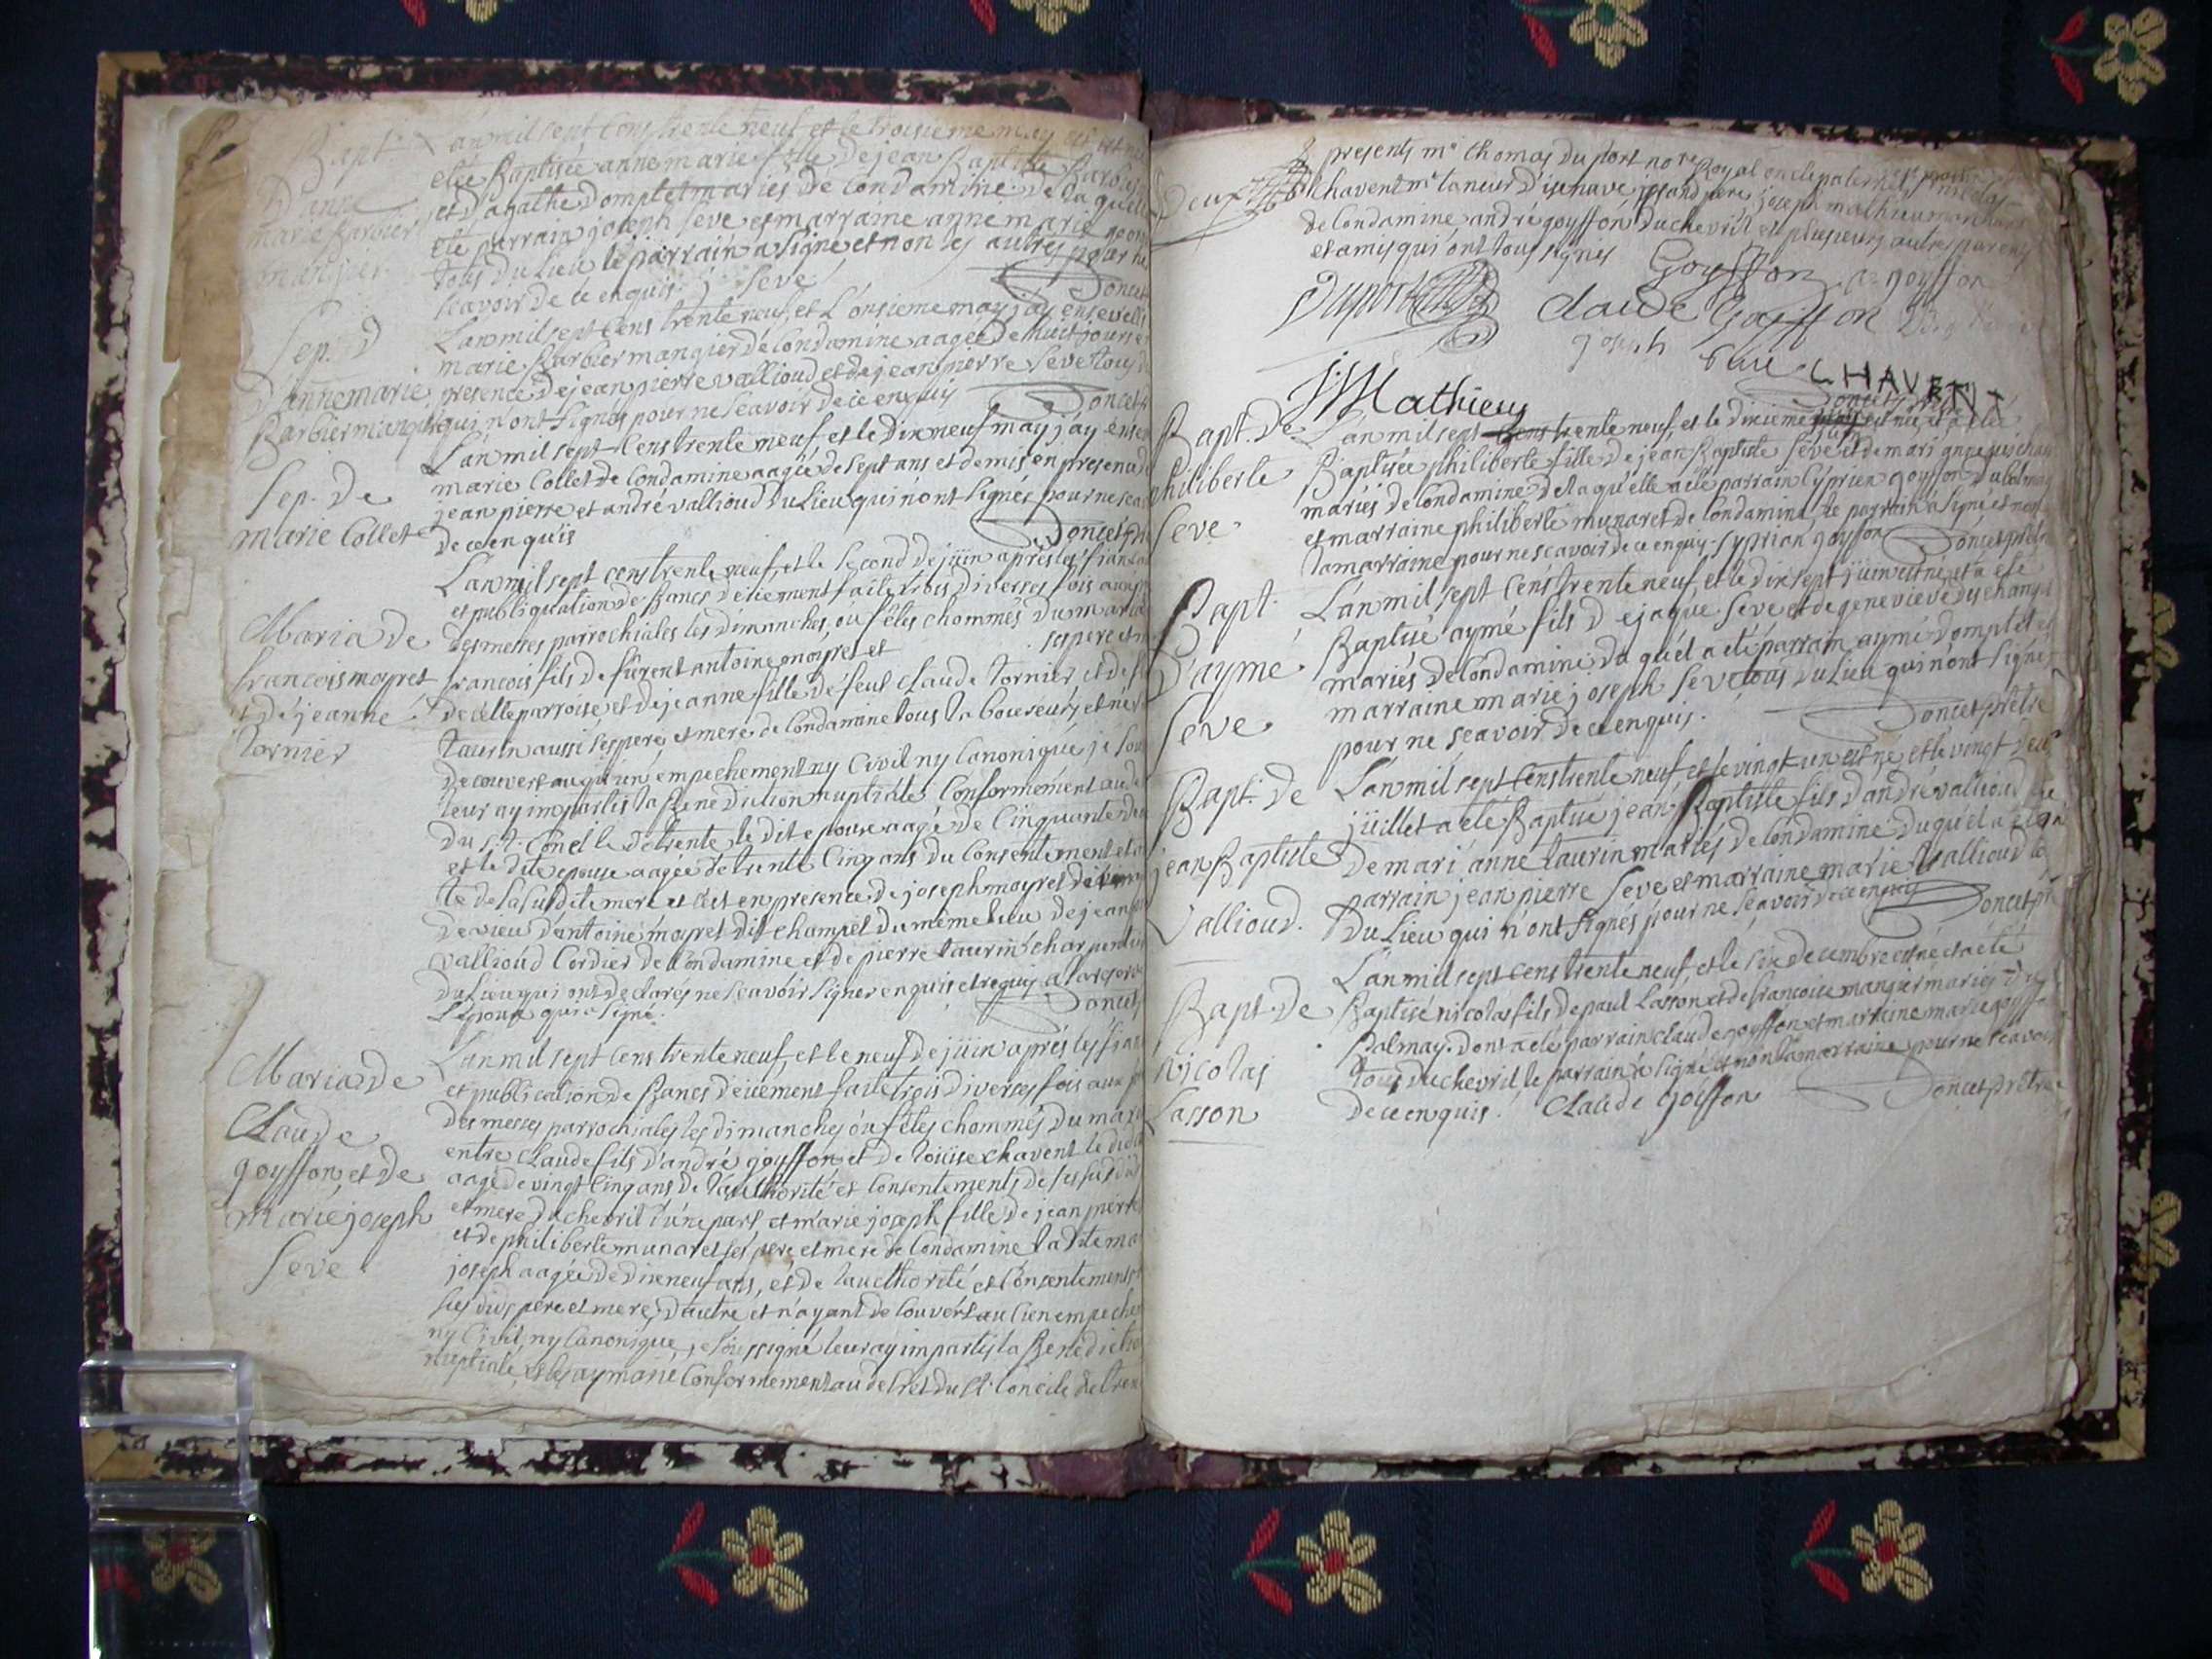 Bapt.
D'anne
marie Barbier
manjier
L'an mil sept Cens trente neuf et le troisieme may
eté Baptisée anne marie fille de jean Baptiste Barbier
et d'agathe Domptet mariés de Condamine de la quelle
eté parrain joseph seve et marraine anne marie
tous du Lieu le parrain a signé et non les autres pour ne
scavoir de ce enquis j seve Doncet
Sep. D
D'anne marie
Barbier manjier
L'an mil sept Cens trente neuf, et L'onsieme may j'ay enseveli
marie Barbier manguer de Condamine aagée de huit jours en
presence de jean pierre vallioud et de jean pierre seve tous du
qui n'ont signés pour ne scavoir de ce enquis Doncet
Sep. De
marie Collet
L'an mil sept Cens trente neuf et le dix neuf may j'ay
marie Collet de Condamine aagée de sept ans et demis en presence de
jean pierre et andré vallioud du Lieu qui n'ont signés pour ne
de ce enquis Doncet
Maria de
francois moyret
et de jeanne
tornier
L'an mil sept cens trente neuf, et le second de jüin après les
et publiquation de Bancs deüement faite trois diverses fois aux
des messes parrochiales les dimanches, ou fêtes chommés du
ses pere et
francois fils de fürent antoine moyret et
de cette parroise, et de jeanne fille de feut claude tornier et de
taurin aussi ses pere, et mere de Condamine tous laboureurs et
decouvert aucun empechement ny Civil ny Canonique je
leur ay impartis la Benediction nuptiale Conformement au
du st. Concile de trente le dit epoux aagé de Cinquante
et la dite epouse aagée de trente Cinq ans du Consentement et
te de la susdite mere et c'est en presence de joseph moyret de
devieu d'antoine moyret dit champel du même lieu de jean
vallioud Cordier de Condamine et de pierre taurin charpentier
du Lieu qui ont declarés ne scavoir signer enquis et requis a la reserve
L'epoux qui a signé. Doncet
Maria de
Claude
goyffon, et de
marie joseph
Seve
L'an mil sept Cens trente neuf, et le neuf de jüin après les
et publication de Bancs deüement faite trois diverses fois aux
des messes parrochiales les dimanches, ou fêtes chommés du
entre Claude fils d'andré goyffon et de Loüise chavent le dit
aagé de vingt Cinq ans de l'aucthorité et Consentements de ses susdits
et mere du chevril d'une part et marie joseph fille de jean pierre
et de philiberte munaret ses pere, et mere de Condamine la dite
joseph aagée de dix neuf ans, et de l'aucthorité et Consentements
ses dits pere et mere, d'autre et n'ayant decouvert aucun
ny Civil, ny Canonique, je soussigné leur ay impartis la Benediction
nuptiale, et les ay marié Conformement au decret du st. Concile de
presents mr. thomas duport Royal oncle paternel
chavent mr taneur d'isenave grand pere, joseph mathieu marchand
de Condamine andré goyffon du chevril et plusieurs autres parens
et amis qui ont tous signés Goyffon goyffon
Duport Claude Goiffon
joseph seve CHAVENT
J Mathieu
Bapt. De
philiberte
Seve
L'an mil sept Cens trente neuf, et le dixieme
Baptisée philiberte fille de jean Baptiste seve et de mari anne
mariés de Condamine de la qu'elle a eté parrain Cyprien goyffon
et marraine philiberte munaret de Condamine, le parrain a signé et non
la marraine pour ne scavoir de ce enquis. syprian goyffon Doncet prêtre
Bapt.
D'aymé
Seve
L'an mil sept Cens trente neuf, et le dix sept jüin est né et a eté
Baptisé aymé fils de jaque seve et de genevieve
mariés de Condamine du quel a eté parrain aymé Domptet et
marraine marie joseph seve tous du Lieu qui n'ont signé
pour ne scavoir de ce enquis. Doncet prêtre
Bapt. De
jean Baptiste
Vallioud.
L'an mil sept Cens trente neuf et le vingt un est né, et le vingt deux
jüillet a eté Baptisé jean Baptiste fils d'andré vallioud et
de mari anne taurin mariés de Condamine du quel a eté
parrain jean pierre seve et marraine marie vallioud
du Lieu qui n'ont signés pour ne scavoir de ce enquis Doncet prê
Bapt. De
Nicolas
Lasson
L'an mil sept Cens trente neuf, et le six decembre est né et a eté
Baptisé nicolas fils de paul Lasson et de francoise manjier mariés
Balmay. dont a eté parrain claude goyffon et marraine marie goyffon
tous du chevril le parrain a signé et non la marraine pour ne scavoir
de ce enquis. Claude Goiffon Doncet prêtre